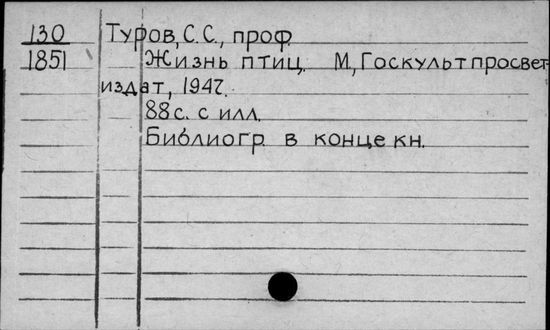 130 Туров, С.С., проф.
1851 Жизнь птиц. М, Госкультпросвет-
издат, 1947.
88 с. с илл.
Библиогр. в конце кн.